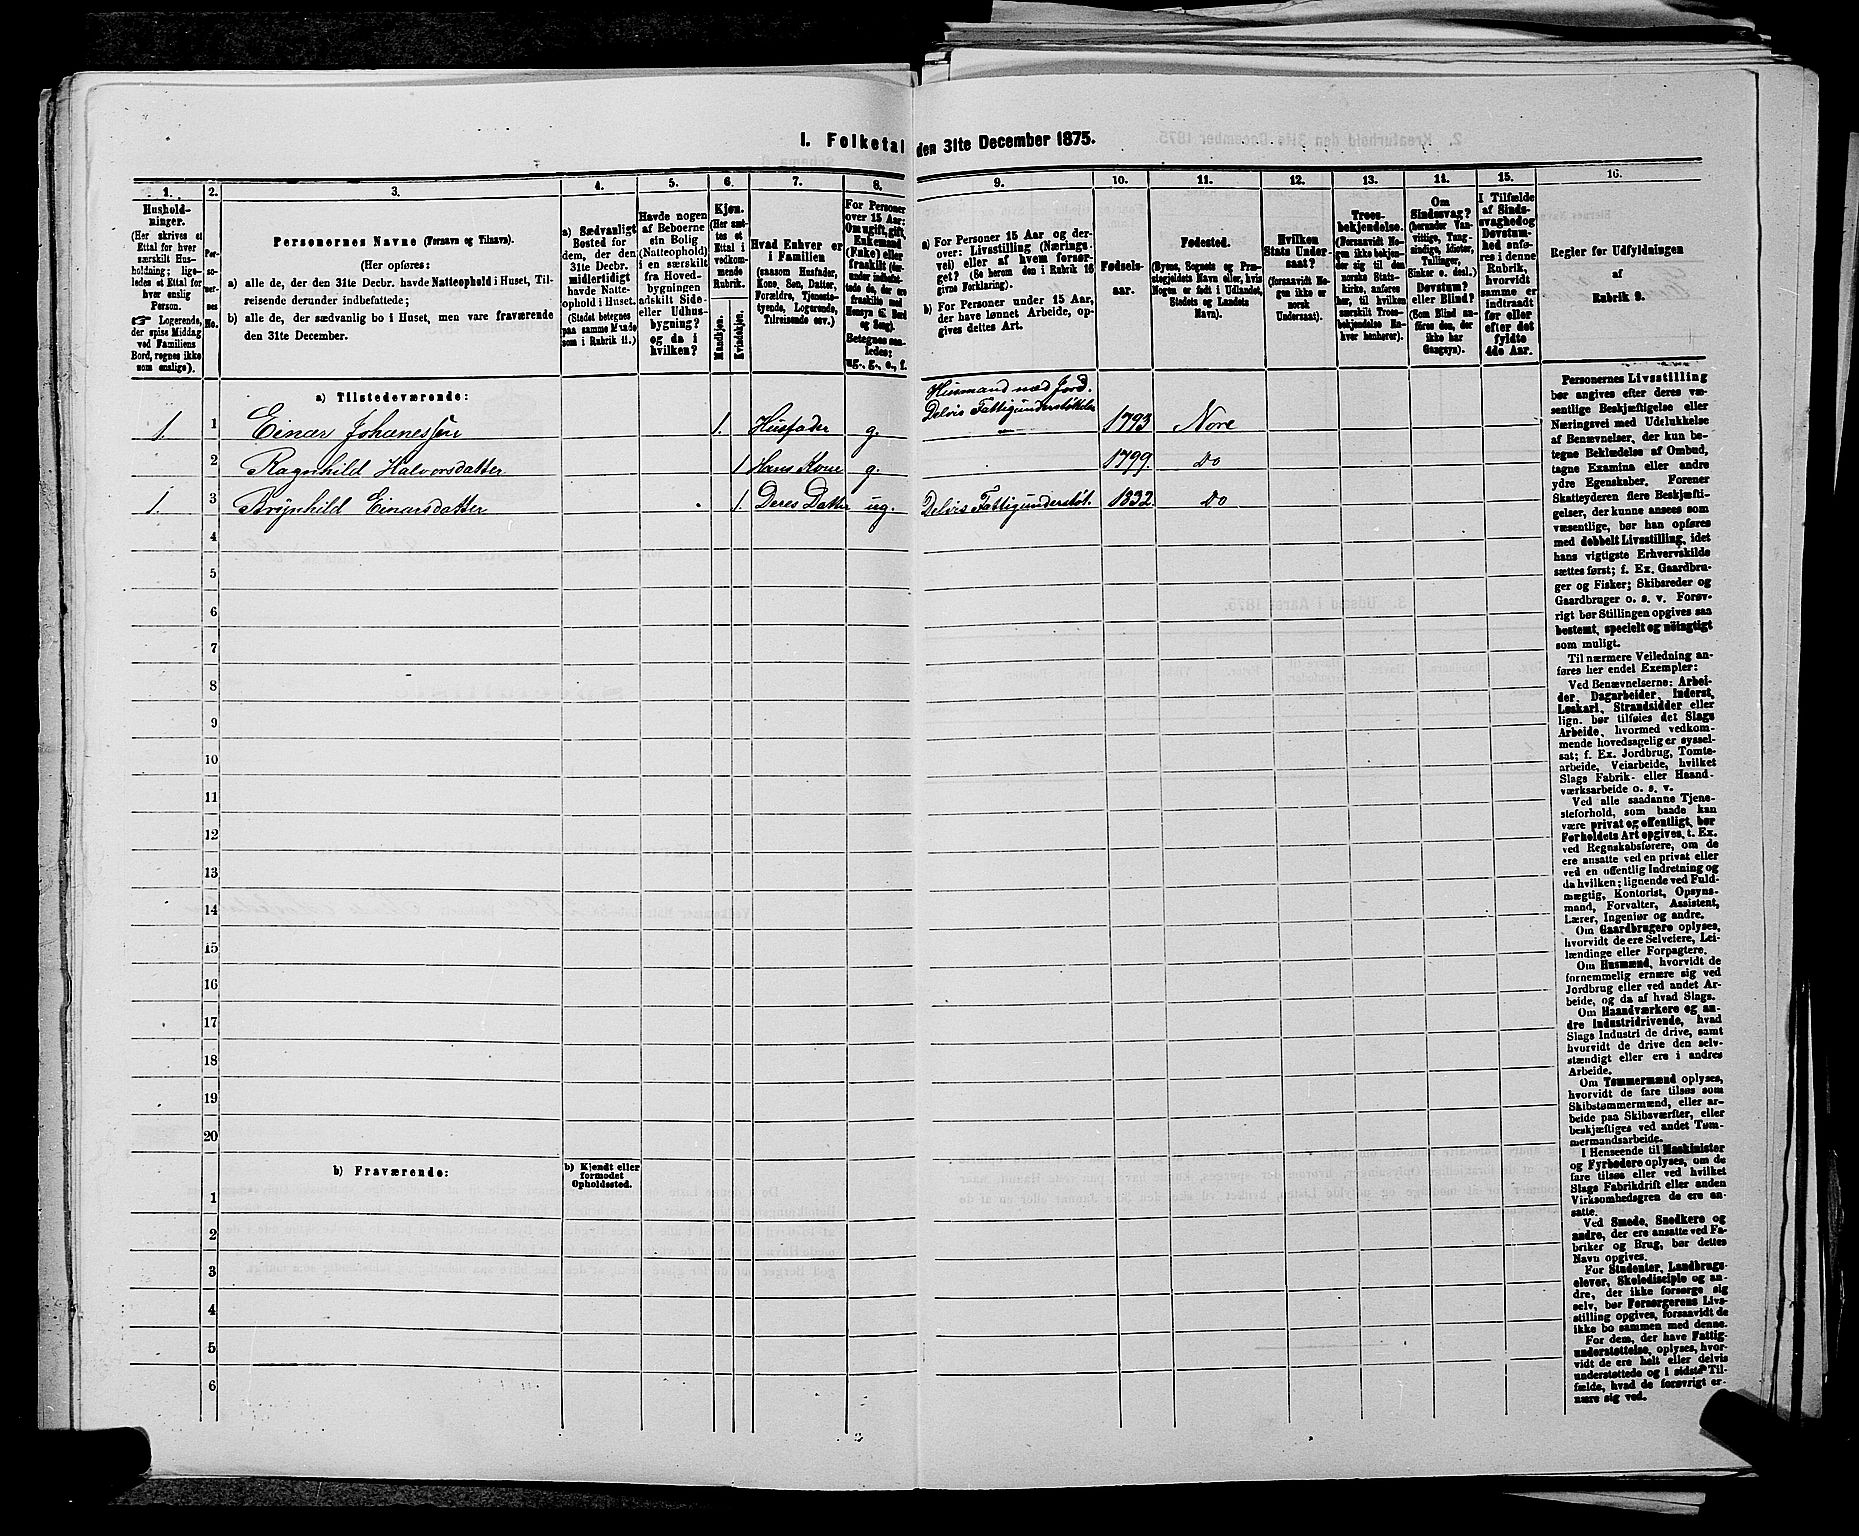 I. Folketal den 31te December 1875.
1.
2.
3.
4.
5.
6.
7.
8.
9.
10.
11.
12.
13.
14.
15.
16.
Hushold-
ninger.
(Her skrives et
Ettal for hver
særskilt Hus-
holdning; lige-
ledes et Ettal for
hver enslig
Person.
☞ Logerende,
der spise Middag
ved Familiens
Bord, regnes ikke
som enslige).
Per-
so-
ner-
nes
No.
Personernes Navne (Fornavn og Tilnavn).
(Her opføres:
a) alle de, der den 31te Decbr. havde Natteophold i Huset, Til-
reisende derunder indbefattede;
b) alle de, der sædvanlig bo i Huset, men vare fraværende
den 31te December.
a) Sædvanligt
Bosted for
dem, der den
31te Decbr.
midlertidigt
havde Natte-
ophold i Huset.
(Stedet betegnes
paa samme Maade
som i Rubrik 11.)
Havde nogen
af Beboerne
sin Bolig
(Natteophold)
i en særskilt
fra Hoved-
bygningen
adskilt Side-
eller Udhus-
bygning?
og da i
hvilken?
Kjøn.
(Her sæt-
tes et
Ettal i
vedkom-
mende
Rubrik.
Mandkjøn.
Kvindekjøn.
Hvad Enhver er
i Familien
(saasom Husfader,
Kone, Søn, Datter,
Forældre, Tjeneste-
tyende, Logerende,
Tilreisende osv.)
For Personer
over 15 Aar:
Om ugift, gift,
Enkemand
(Enke) eller
fraskilt
Betegnes saa-
ledes:
ug., g., e., f.
a) For Personer 15 Aar og der-
over: Livsstilling (Nærings-
vei) eller af hvem forsør-
get? (Se herom den i Rubrik 16
givne Forklaring).
b) For Personer under 15 Aar,
der have lønnet Arbeide, op-
gives dettes Art.
Fødsels-
aar.
Fødested.
(Byens, Sognets og Præ-
stegjeldets Navn eller, hvis
Nogen er født i Udlandet,
Stedets og Landets
Navn).
Hvilken
Stats Under-
saat?
(forsaavidt No-
gen ikke er
norsk
Undersaat).
Troes-
bekjendelse.
(Forsaavidt No-
gen ikke bekjen-
der sig til den
norske Stats-
kirke, anføres
her, til hvilken
særskilt Troes-
bekjendelse En-
hver henhører).
Om
Sindssvag?
(herunder Van-
vittige, Tung-
sindige, Idioter,
Tullinger,
Sinker o. desl.)
Døvstum?
eller Blind?
(Som Blind an-
føres den, der
ikke har
Gangsyn).
I Tilfælde
af Sinds-
svaghed og
Døvstum-
hed anfø-
res i denne
Rubrik,
hvorvidt
samme er
indtraadt
før eller
efter det
fyldte
4de Aar.
Regler for Udfyldningen
af
Rubrik 9.
a) Tilstedeværende:
Husmand med Jord.
1. 1 Einar Johanessen 1. Husfader g. Delvis Fattigunderstøttelse 1793 Nore
2 Ragnhild Halvorsdatter 1 Hans Kone g. 1799. Do
1. 3 Brynhild Einarsdatter 1. Deres Datter ug. Delvis Fattigunderstøt. 1832. Do
4
5
6
7
8
9
10
11
12
13
14
15
16
17
18
19
20
b) Fraværende:
b) Kjendt eller
formodet
Opholdssted.
1
2
3
4
5
6
Personernes Livsstilling
bør angives efter deres væ-
sentlige Beskjæftigelse eller
Næringsvei med Udelukkelse
af Benævnelser, der kun be-
tegne Beklædelse af Ombud,
tagne Examina eller andre
ydre Egenskaber. Forener
Skatteyderen flere Beskjæfti-
gelser, der kunne ansees som
væsentlige, bør han opføres
med dobbelt Livsstilling, idet
hans vigtigste Erhvervskilde
sættes først; f. Ex. Gaardbru-
ger og Fisker; Skibsreder og
Gaardbruger o. s. v. Forøv-
rigt bør Stillingen opgives saa
bestemt, specielt og nøiagtigt
som muligt.
Til nærmere Veiledning an-
føres her endel Exempler:
Ved Benævnelserne: Arbei-
der, Dagarbeider, Inderst,
Løskarl, Strandsidder eller
lign. bør tilføies det Slags
Arbeide, hvormed vedkom-
mende hovedsagelig er syssel-
sat; f. Ex. Jordbrug, Tomte-
arbeide, Veiarbeide, hvilket
Slags Fabrik- eller Haand-
værksarbeide o. s. v.
Ved alle saadanne Tjene-
steforhold, som baade kan
være privat og offentligt, bør
Forholdets Art opgives, t. Ex.
ved Regnskabsførere, om de
ere ansatte ved en privat eller
ved en offentlig Indretning og
da hvilken; lignende ved Fuld-
mægtig, Kontorist, Opsyns-
mand, Forvalter, Assistent,
Lærer, Ingeniør og andre.
Om Gaardbrugere oplyses,
hvorvidt de ere Selveiere, Lei-
lændinge eller Forpagtere.
Om Husmænd, hvorvidt de
fornemmelig ernære sig ved
Jordbrug eller ved andet Ar-
beide, og da af hvad Slags.
Om Haandværkere og an-
dre Industridrivende, hvad
Slags Industri de drive, samt
hvorvidt de drive den selv-
stændigt eller ere i andres
Arbeide.
Om Tømmermænd oplyses,
hvorvidt de fare tilsøs som
Skibstømmermænd, eller ar-
beide paa Skibsværfter, eller
beskjæftiges ved andet Tøm-
mermandsarbeide.
I Henseende til Maskinister
og Fyrbødere oplyses, om de
fare tilsøs eller ved hvilket
Slags Fabrikdrift eller anden
Virksomhedsgren de ere an-
satte.
Ved Smede, Snedkere og
andre, der ere ansatte ved Fa-
briker og Brug, bør dettes
Navn opgives.
For Studenter, Landbrugs-
elever, Skoledisciple og an-
dre, der ikke forsørge sig
selv, bør Forsørgerens Livs-
stilling opgives, forsaavidt de
ikke bo sammen med denne.
For dem, der have Fattig-
understøttelse, oplyses, hvor-
vidt de ere helt eller delvis
understøttede og i sidste Til-
fælde, hvad de forøvrigt er-
nære sig ved.